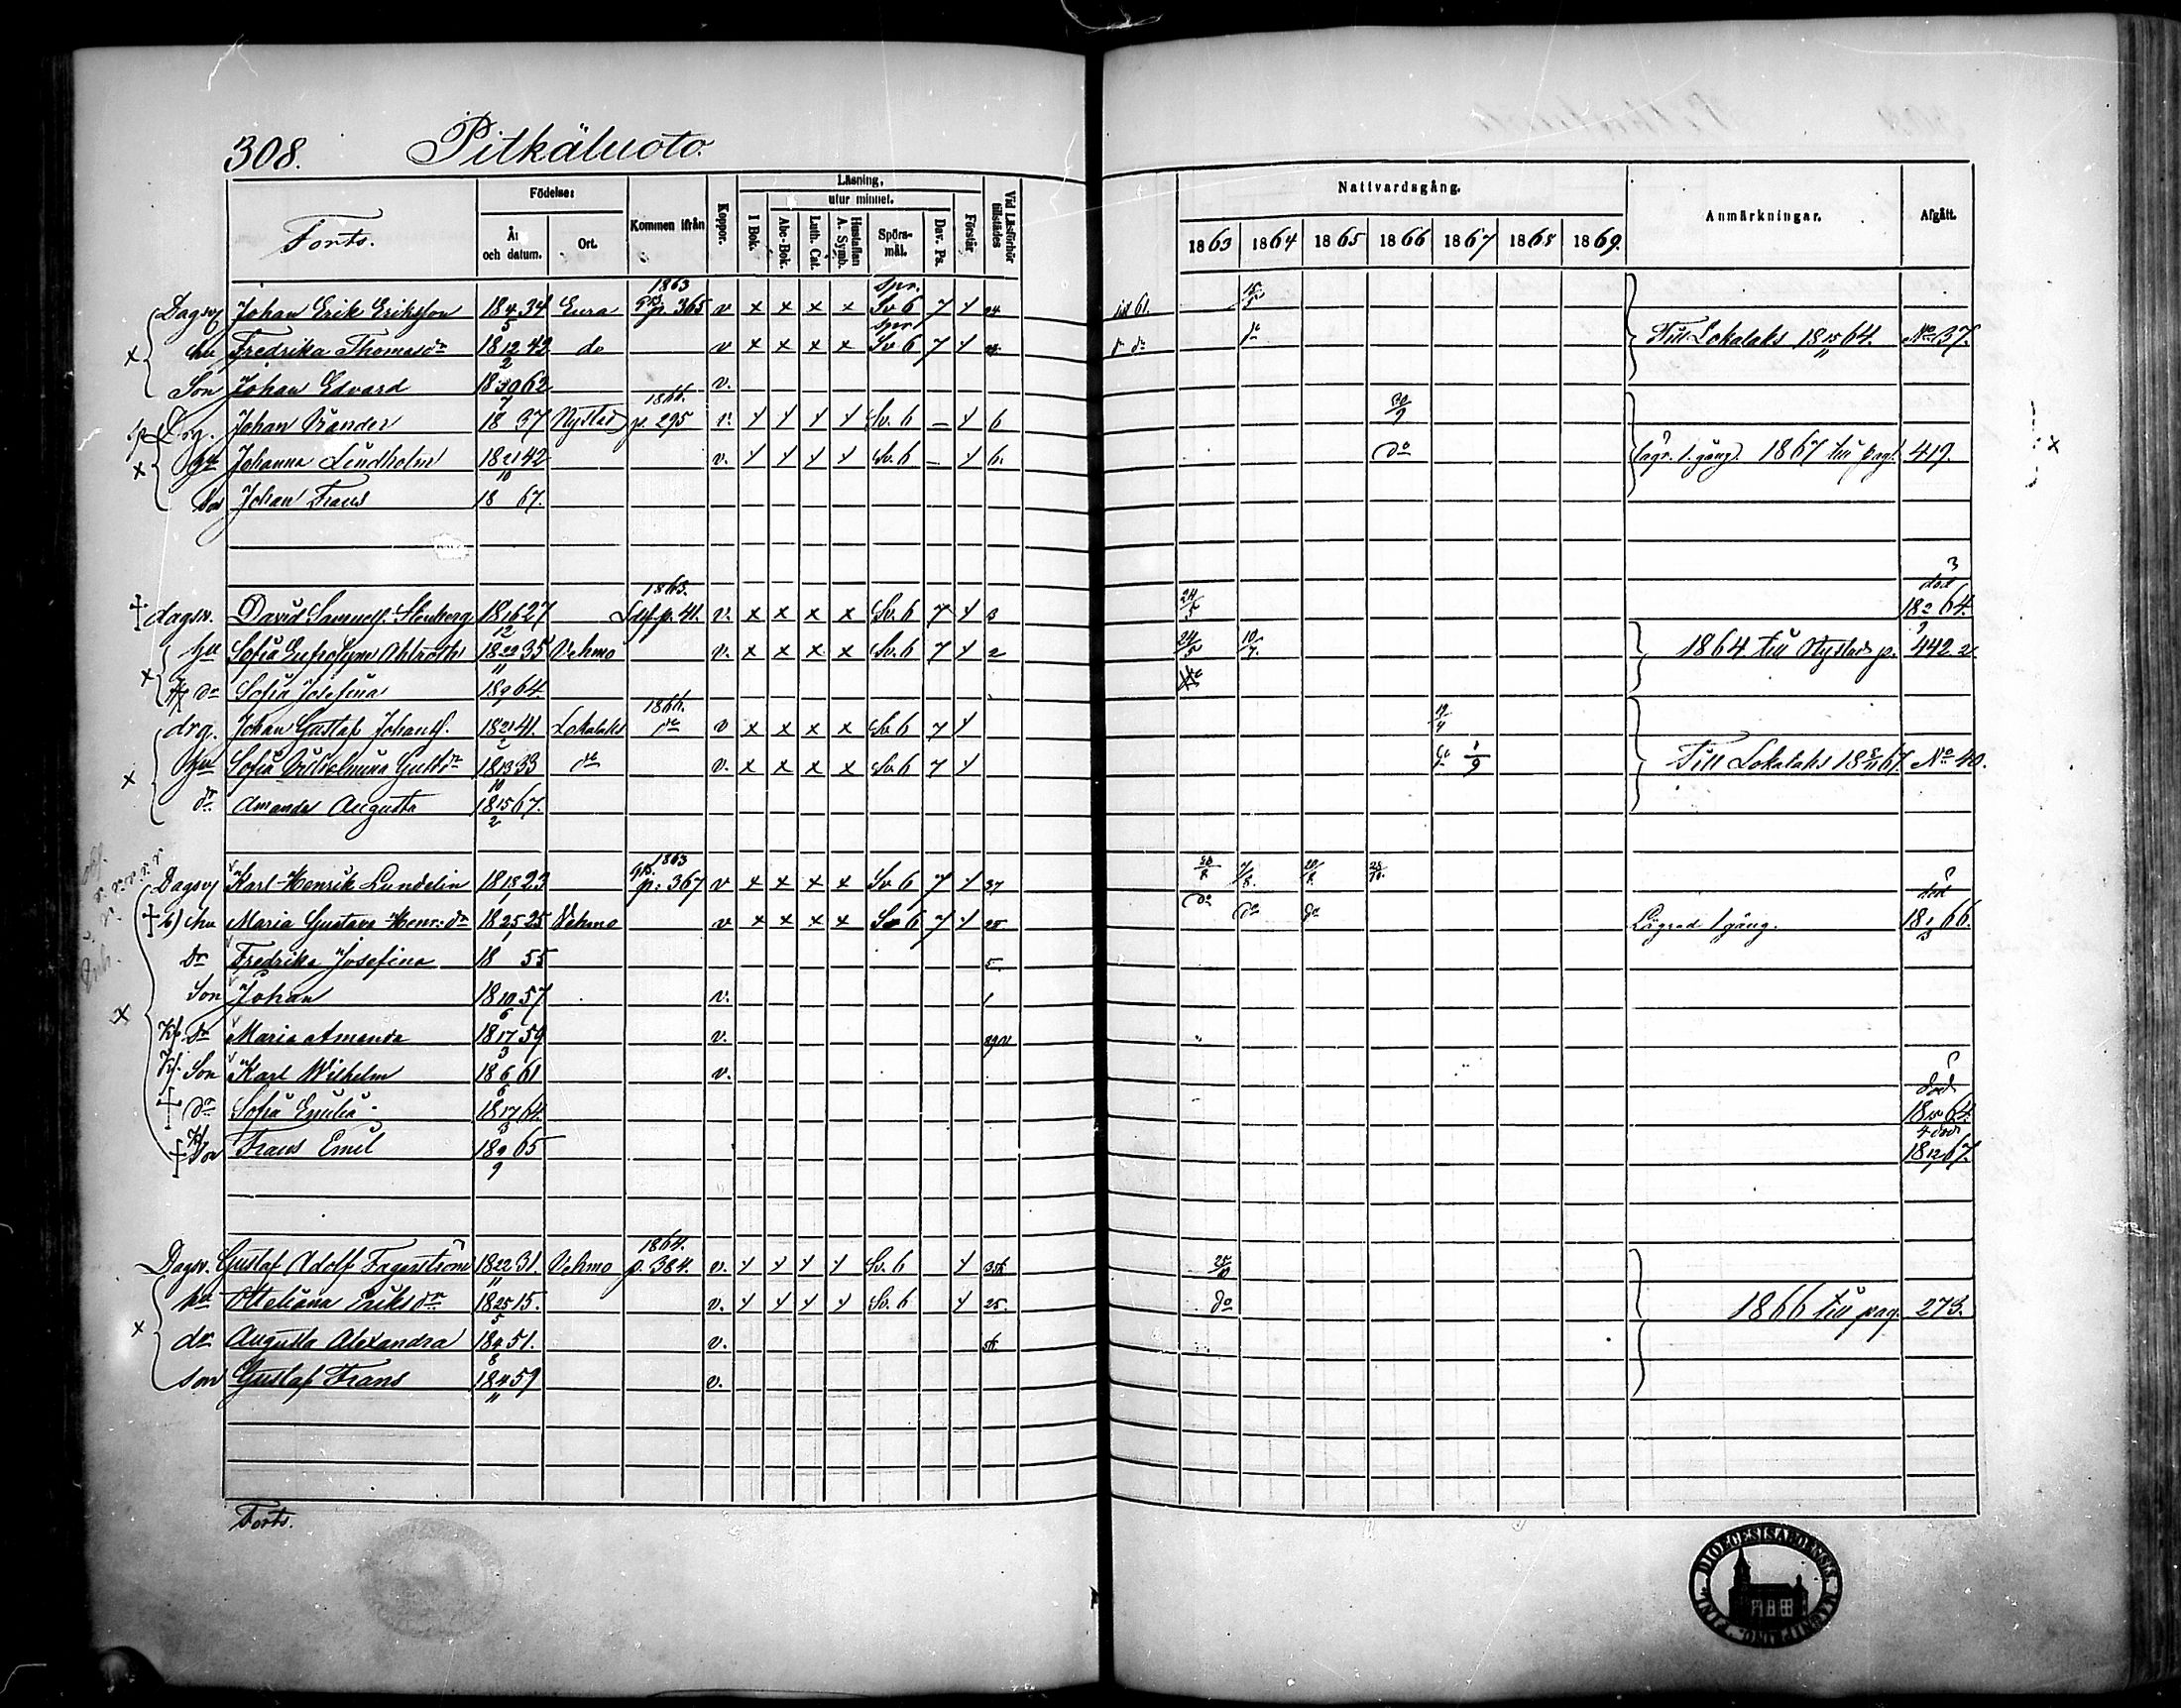 308. Pitkäluoto.
Forts.
Födelse: År och datum. Ort. Kommen ifrån Koppor. Läsning, utur minnet. I Bok. Abc-Bok. Luth. Cat. Hustaflan A. Symb. Spörsmål. Dav. Ps. Förstår Vid Läsförhör tillstädes
Nattvardsgång. 1863 1864 1865 1866 1867 1868 1869. Anmärkningar. Afgått.
Dagsv Johan Erik Eriksson 18 4/5 34 Eura 1863 p. 365 v x x x x spr. Sv 6 7 24
hu Fredrika Thomasdr 18 12/2 42 do v x x x x spr Sv 6 7 do Till Lokalaks 18 15/11 64. No 37.
Son Johan Edvard 18 30/7 62 v.
Drg. Johan Wander 18 37 Nystad 1866. p. 295 v. Sv. 6 – 6 30/9
hu Johanna Lindholm 18 21/10 42 v. Sv. 6 – 6. do lägr. 1 gång. 1867 till pag. 419.
Son Johan Frans 18 67.
† dagsv. David Samuelss. Stenberg 18 16/12 27 1863. p. 41. v. x x x x Sv. 6 7 3 24/5 död 18 2/3 64.
hu Sofia Eufrosyne Ahlroth 18 22/11 35 Vehmo v. x x x x Sv. 6 7 2 24/5 10/7. 1864 till Nystads p. 442.
dr Sofia Josefina 18 9 64
drg. Johan Gustaf Johanss. 18 21/2 41. Lokalaks 1866. do v x x x x Sv. 6 7 19/4
hu Sofia Wilhelmina Gustdr 18 13/10 33 do v. x x x x Sv. 6 7 do 1/9 Till Lokalaks 18 8/11 67. No 40.
dr Amanda Augusta 18 15/2 67.
Dagsv Karl Henrik Lundelin 18 18/1 23 1863 p. 367 v x x x x Sv 6 7 37
† hu Maria Gustava Henr: dr 18 25/1 25 Vehmo v x x x x Sv 6 7 25 do do do Lägrad 1 gång. död 18 1/3 66.
Dr Fredrika Josefina 18 55 5.
Son Johan 18 10/6 57 v. 1
Dr Maria Amanda 18 17/3 59 v.
Son Karl Wilhelm 18 6/6 61 v.
† dr Sofia Emilia 18 17/3 64. död 18 15/4 64
† Son Frans Emil 18 9/9 65 död 18 12 67.
Dagsv. Gustaf Adolf Fagerström 18 22/11 31. Vehmo 1864. p. 384. v. Sv. 6 25/10
hu Otteliana Eriksdr 18 25/5 15. v. Sv. 6 25. do 1866 till pag. 273.
dr Augusta Alexandra 18 4/8 51. v.
son Gustaf Frans 18 4/11 59 v.
Forts.
DIOECESIS ABOENSIS